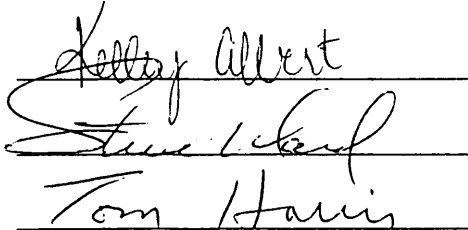 Kelley Albert
Steve Ward
Tom Harris